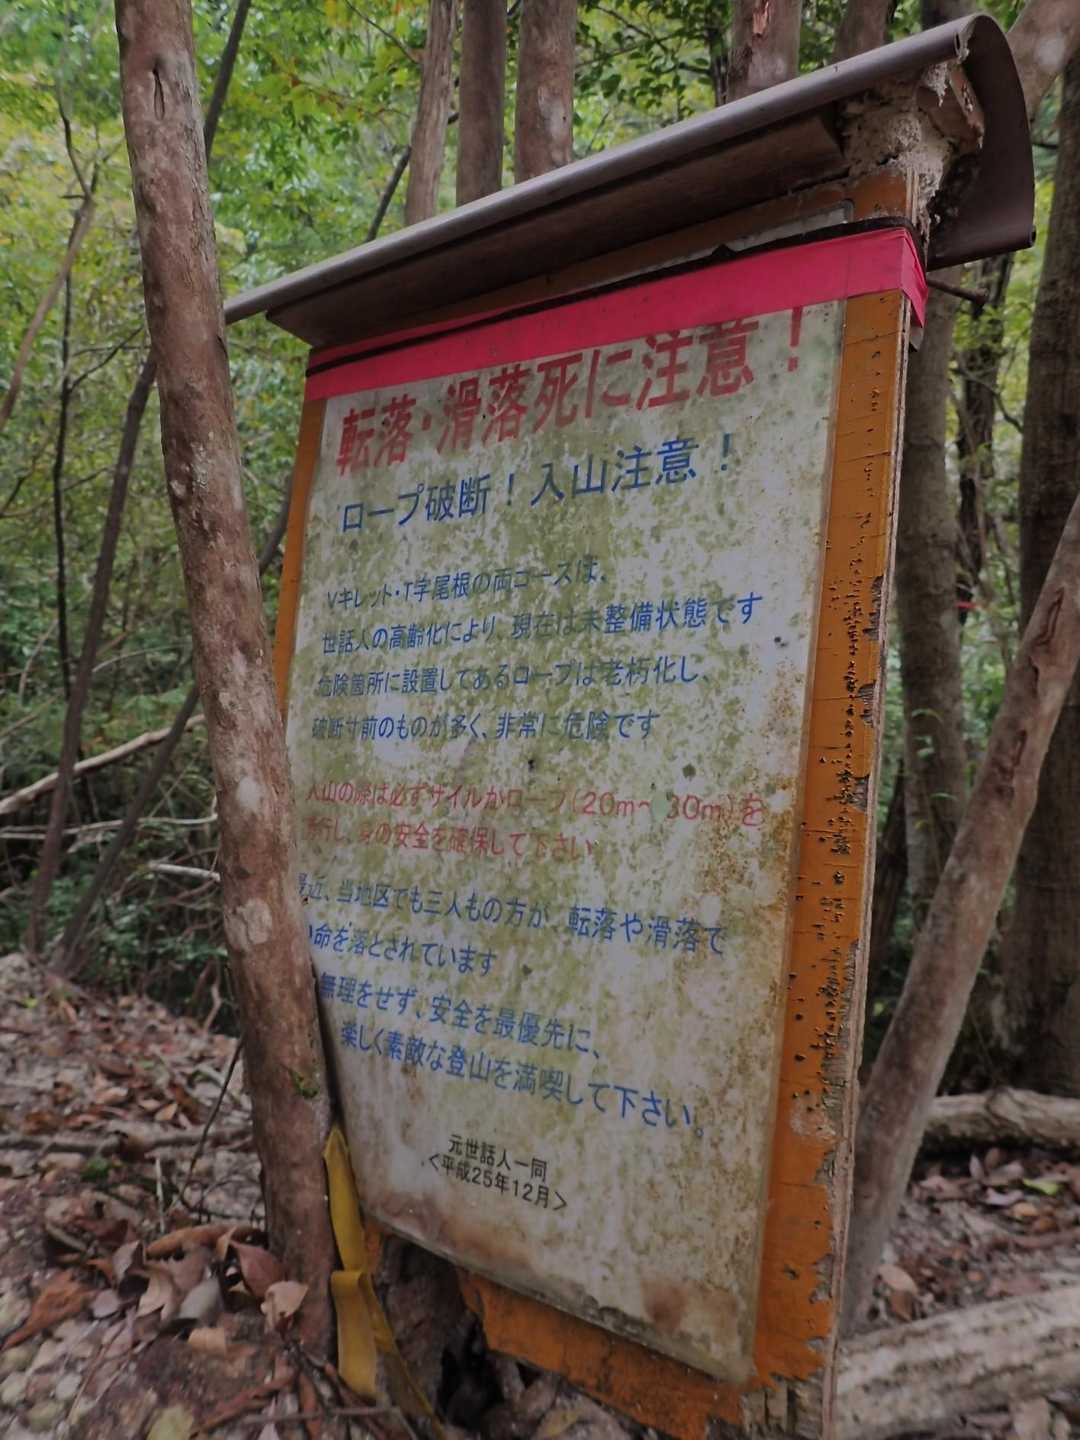 転落・滑落死に注意！
ロープ破断！入山注意！
Vキレット・T字尾根の両コースは、
世話人の高齢化により、現在は未整備状態です
危険箇所に設置してあるロープは老朽化し、
破断寸前のものが多く、非常に危険です
入山の際は必ずザイルかロープ(20m～30m)を
携行し、身の安全を確保して下さい
最近、当地区でも三人もの方が、転落や滑落で
命を落とされています
無理をせず、安全を最優先に、
楽しく素敵な登山を満喫して下さい。
元世話人一同
＜平成25年12月＞